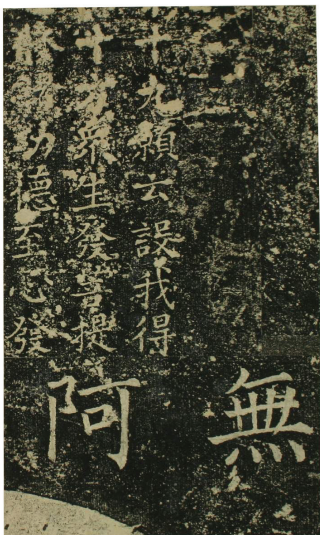 十九願云設我得
十方衆生發菩提
修諸功德至心發
無
阿